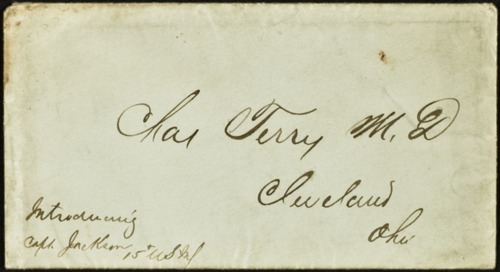 Chas Terry M.D
Cleveland
Ohio
Introducing
Capt. Jackson 15th US